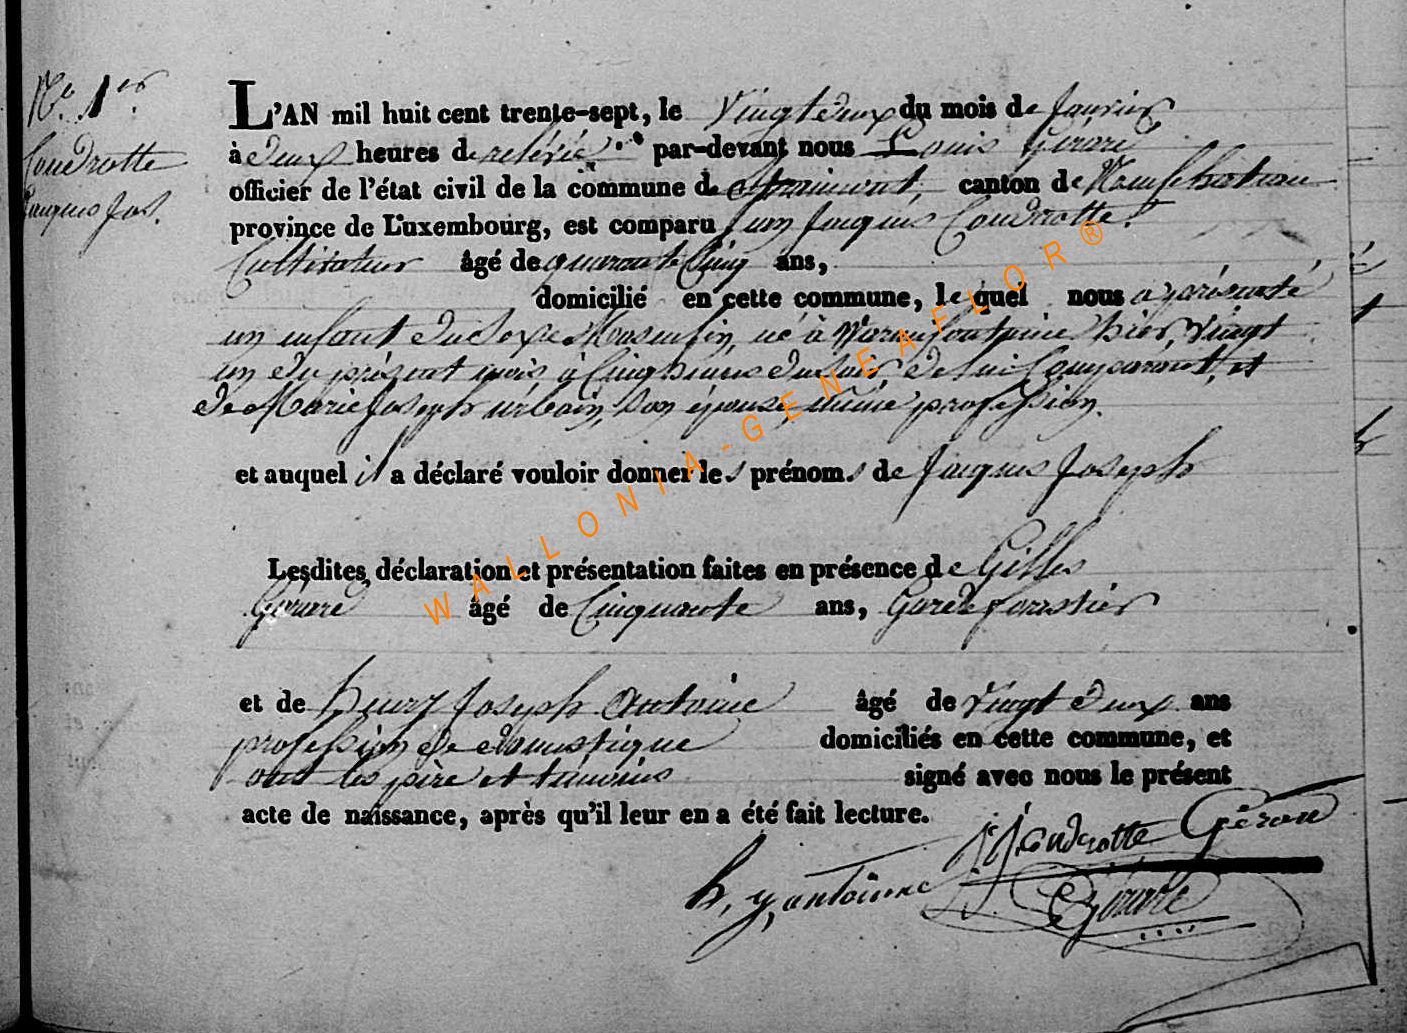 N.° 1er
Coudrotte
Jacques Jos.
L'AN mil huit cent trente-sept, le Vingt deux du mois de Janvier
à deux heures de relevée par-devant nous Louis Gerard
officier de l'état civil de la commune de Straimont, canton de Neufchateau
province de Luxembourg, est comparu Jean Jacques Coudrotte.
Cultivateur âgé de quarante Cinq ans,
domicilié en cette commune, lequel nous a présenté
un enfant du sexe Masculin, né à Warmifontaine hier, vingt
un du présent mois à Cinq heures du soir, de lui Comparant, et
de Marie Joseph urbain, son épouse, même profession.
et auquel il a déclaré vouloir donner les prénoms de Jacques Joseph
Lesdites déclaration et présentation faites en présence de Gilles
Gérard âgé de Cinquante ans, Garde forestier
et de henry Joseph Antoine âgé de vingt deux ans
profession de domestique domiciliés en cette commune, et
ont les père et témoins signé avec nous le présent
acte de naissance, après qu'il leur en a été fait lecture.
J J Coudrotte Gérard
h, y, antoinne
Gérard
WALLONIA-GENEAFLOR®